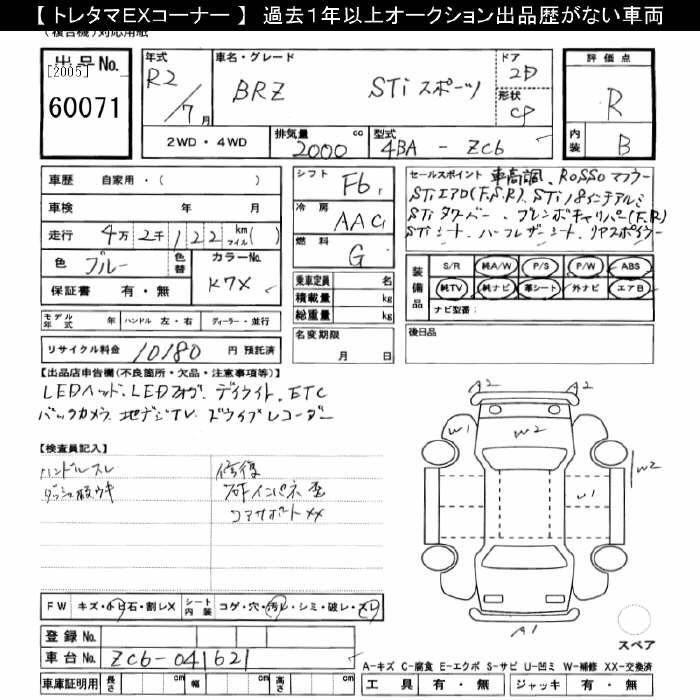 【 トレタマEXコーナー 】 過去1年以上オークション出品歴がない車両
(複合機)対応用紙
出品No.
[2005]
60071
年式
R2/7月
車名・グレード
BRZ STiスポーツ
ドア
2D
形状
CP
評価点
R
内装
B
2WD・4WD
排気量
2000 cc
型式
4BA - ZC6
車歴 自家用・( )
車検 年 月
走行 4万2千122 km マイル( )
色 ブルー
色替
カラーNo.
K7X
保証書 有・無
モデル年式 年 ハンドル 左・右 ディーラー・並行
リサイクル料金 10180 円 預託済
シフト
F6
冷房
AAC
燃料
G
乗車定員 名
積載量 kg
総重量 kg
名変期限
月 日
セールスポイント 車高調、ROSSOマフラー
STiエアロ(F.S.R)、STi18インチアルミ
STiタワーバー、ブレンボキャリパー(F.R)
STiシート、ハーフレザーシート、リアスポイラー
装備品
S/R 純A/W P/S P/W ABS
純TV 純ナビ 革シート 外ナビ エアB
ナビ型番:
後日品
【出品店申告欄(不良箇所・欠品・注意事項等)】
LEDヘッド、LEDフォグ、デイライト、ETC
バックカメラ 地デジTV、ドライブレコーダー
【検査員記入】
ハンドルスレ
修復
コアサポートXX
A2 A2
W1 W2
W2
W1
A1
スペア
FW キズ・トビ石・割レX シート内装 コゲ・穴・汚レ・シミ・破レ・スレ
登録No.
車台No. ZC6-041621
車庫証明用 長さ cm 幅 cm 高さ cm
A-キズ C-腐食 E-エクボ S-サビ U-凹ミ W-補修 XX-交換済
工具 有・無 ジャッキ 有・無